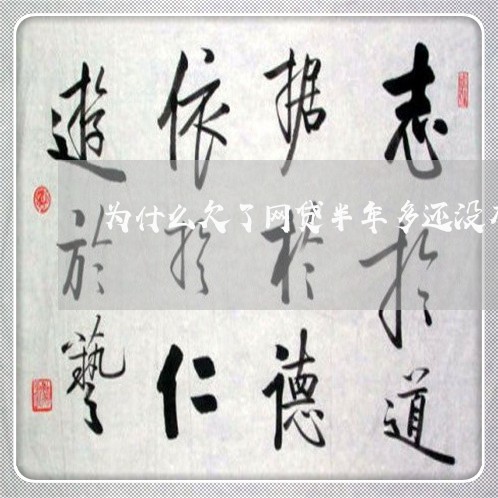 志於道
据於德
依於仁
遊於藝
为什么欠了网贷半年多还没